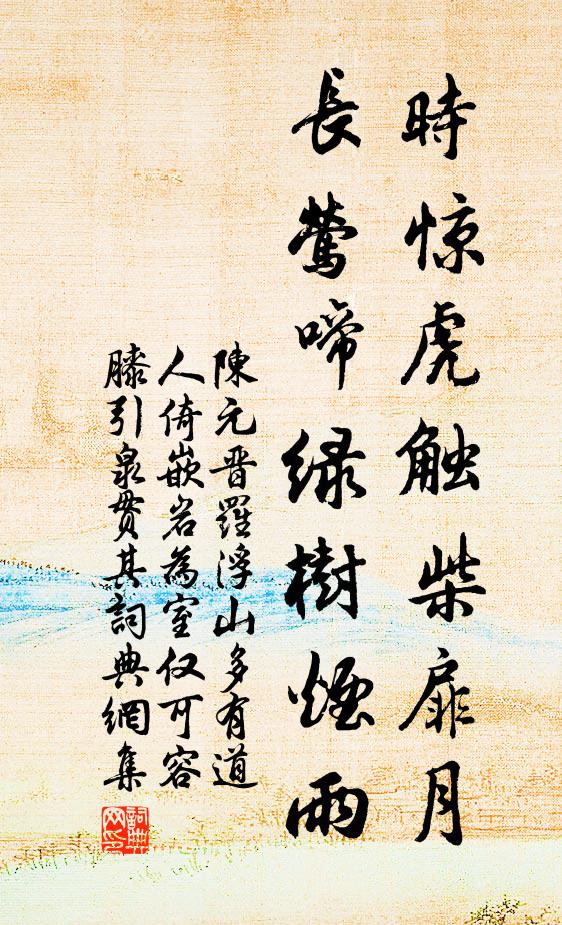 時惊虎触柴扉月
長莺啼绿樹煙雨
陳元晋羅浮山多有道
人倚嵌岩為室仅可容
膝引泉贯其詞典網集
詞典網印